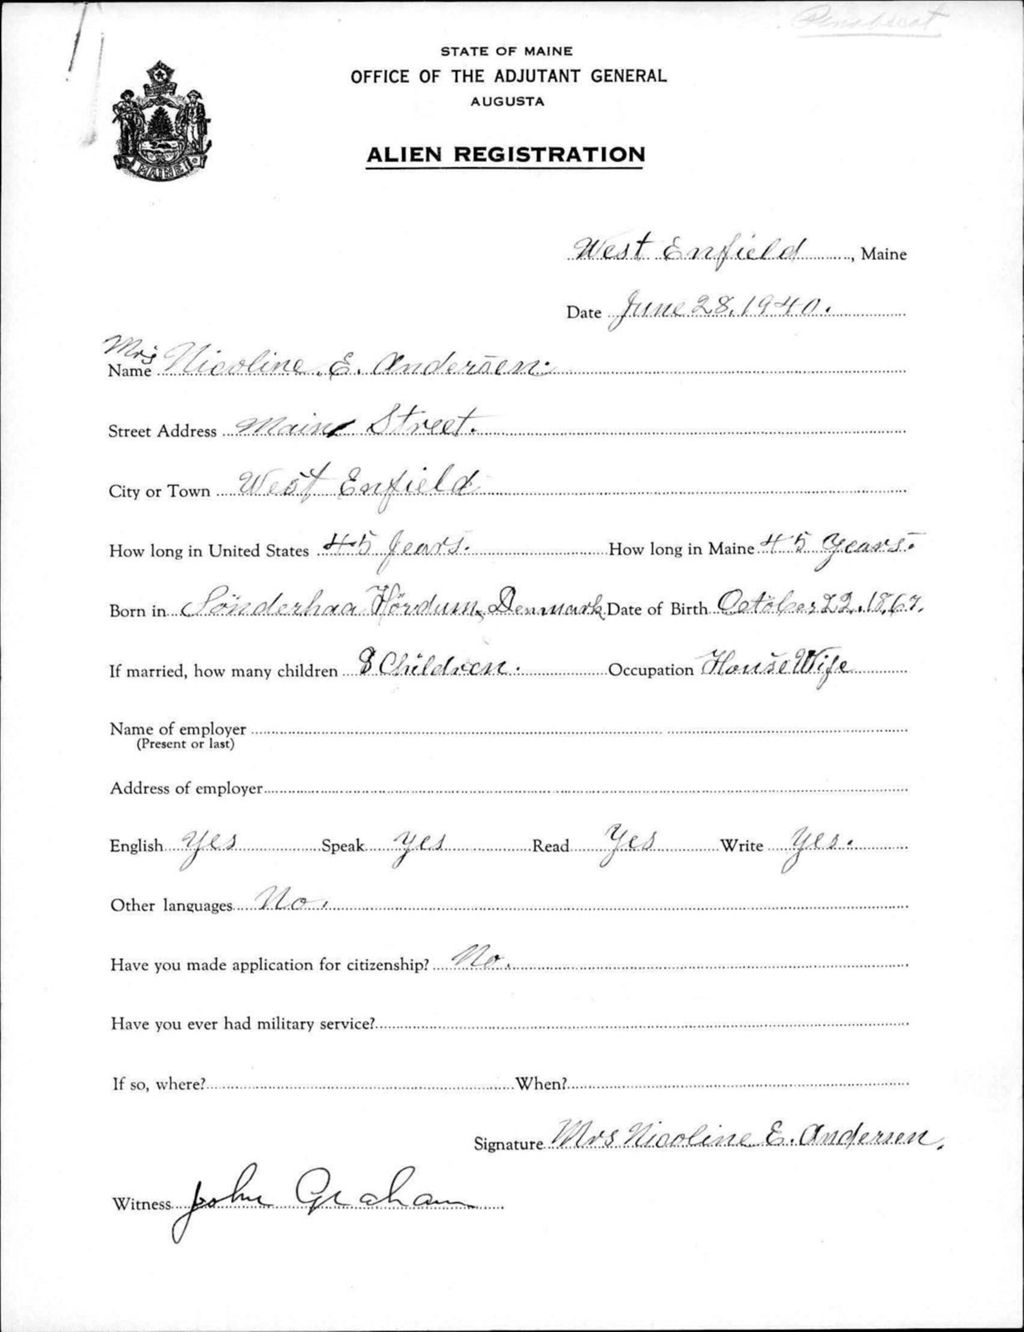 Penobscot
STATE OF MAINE
OFFICE OF THE ADJUTANT GENERAL
AUGUSTA
ALIEN REGISTRATION
MAINE
West Enfield, Maine
Date June 28, 1940.
Mrs
Name Nicoline. E. Andersen.
Street Address Main Street.
City or Town West Enfield
How long in United States 45 years. How long in Maine 45 years.
Born in Sönderhaa Hördum, Denmark Date of Birth October 22, 1867.
If married, how many children 8 Children. Occupation House Wife
Name of employer
(Present or last)
Address of employer
English Yes Speak yes Read Yes Write yes.
Other languages No.
Have you made application for citizenship? No.
Have you ever had military service?
If so, where? When?
Signature Mrs Nicoline E. Andersen.
Witness John Graham